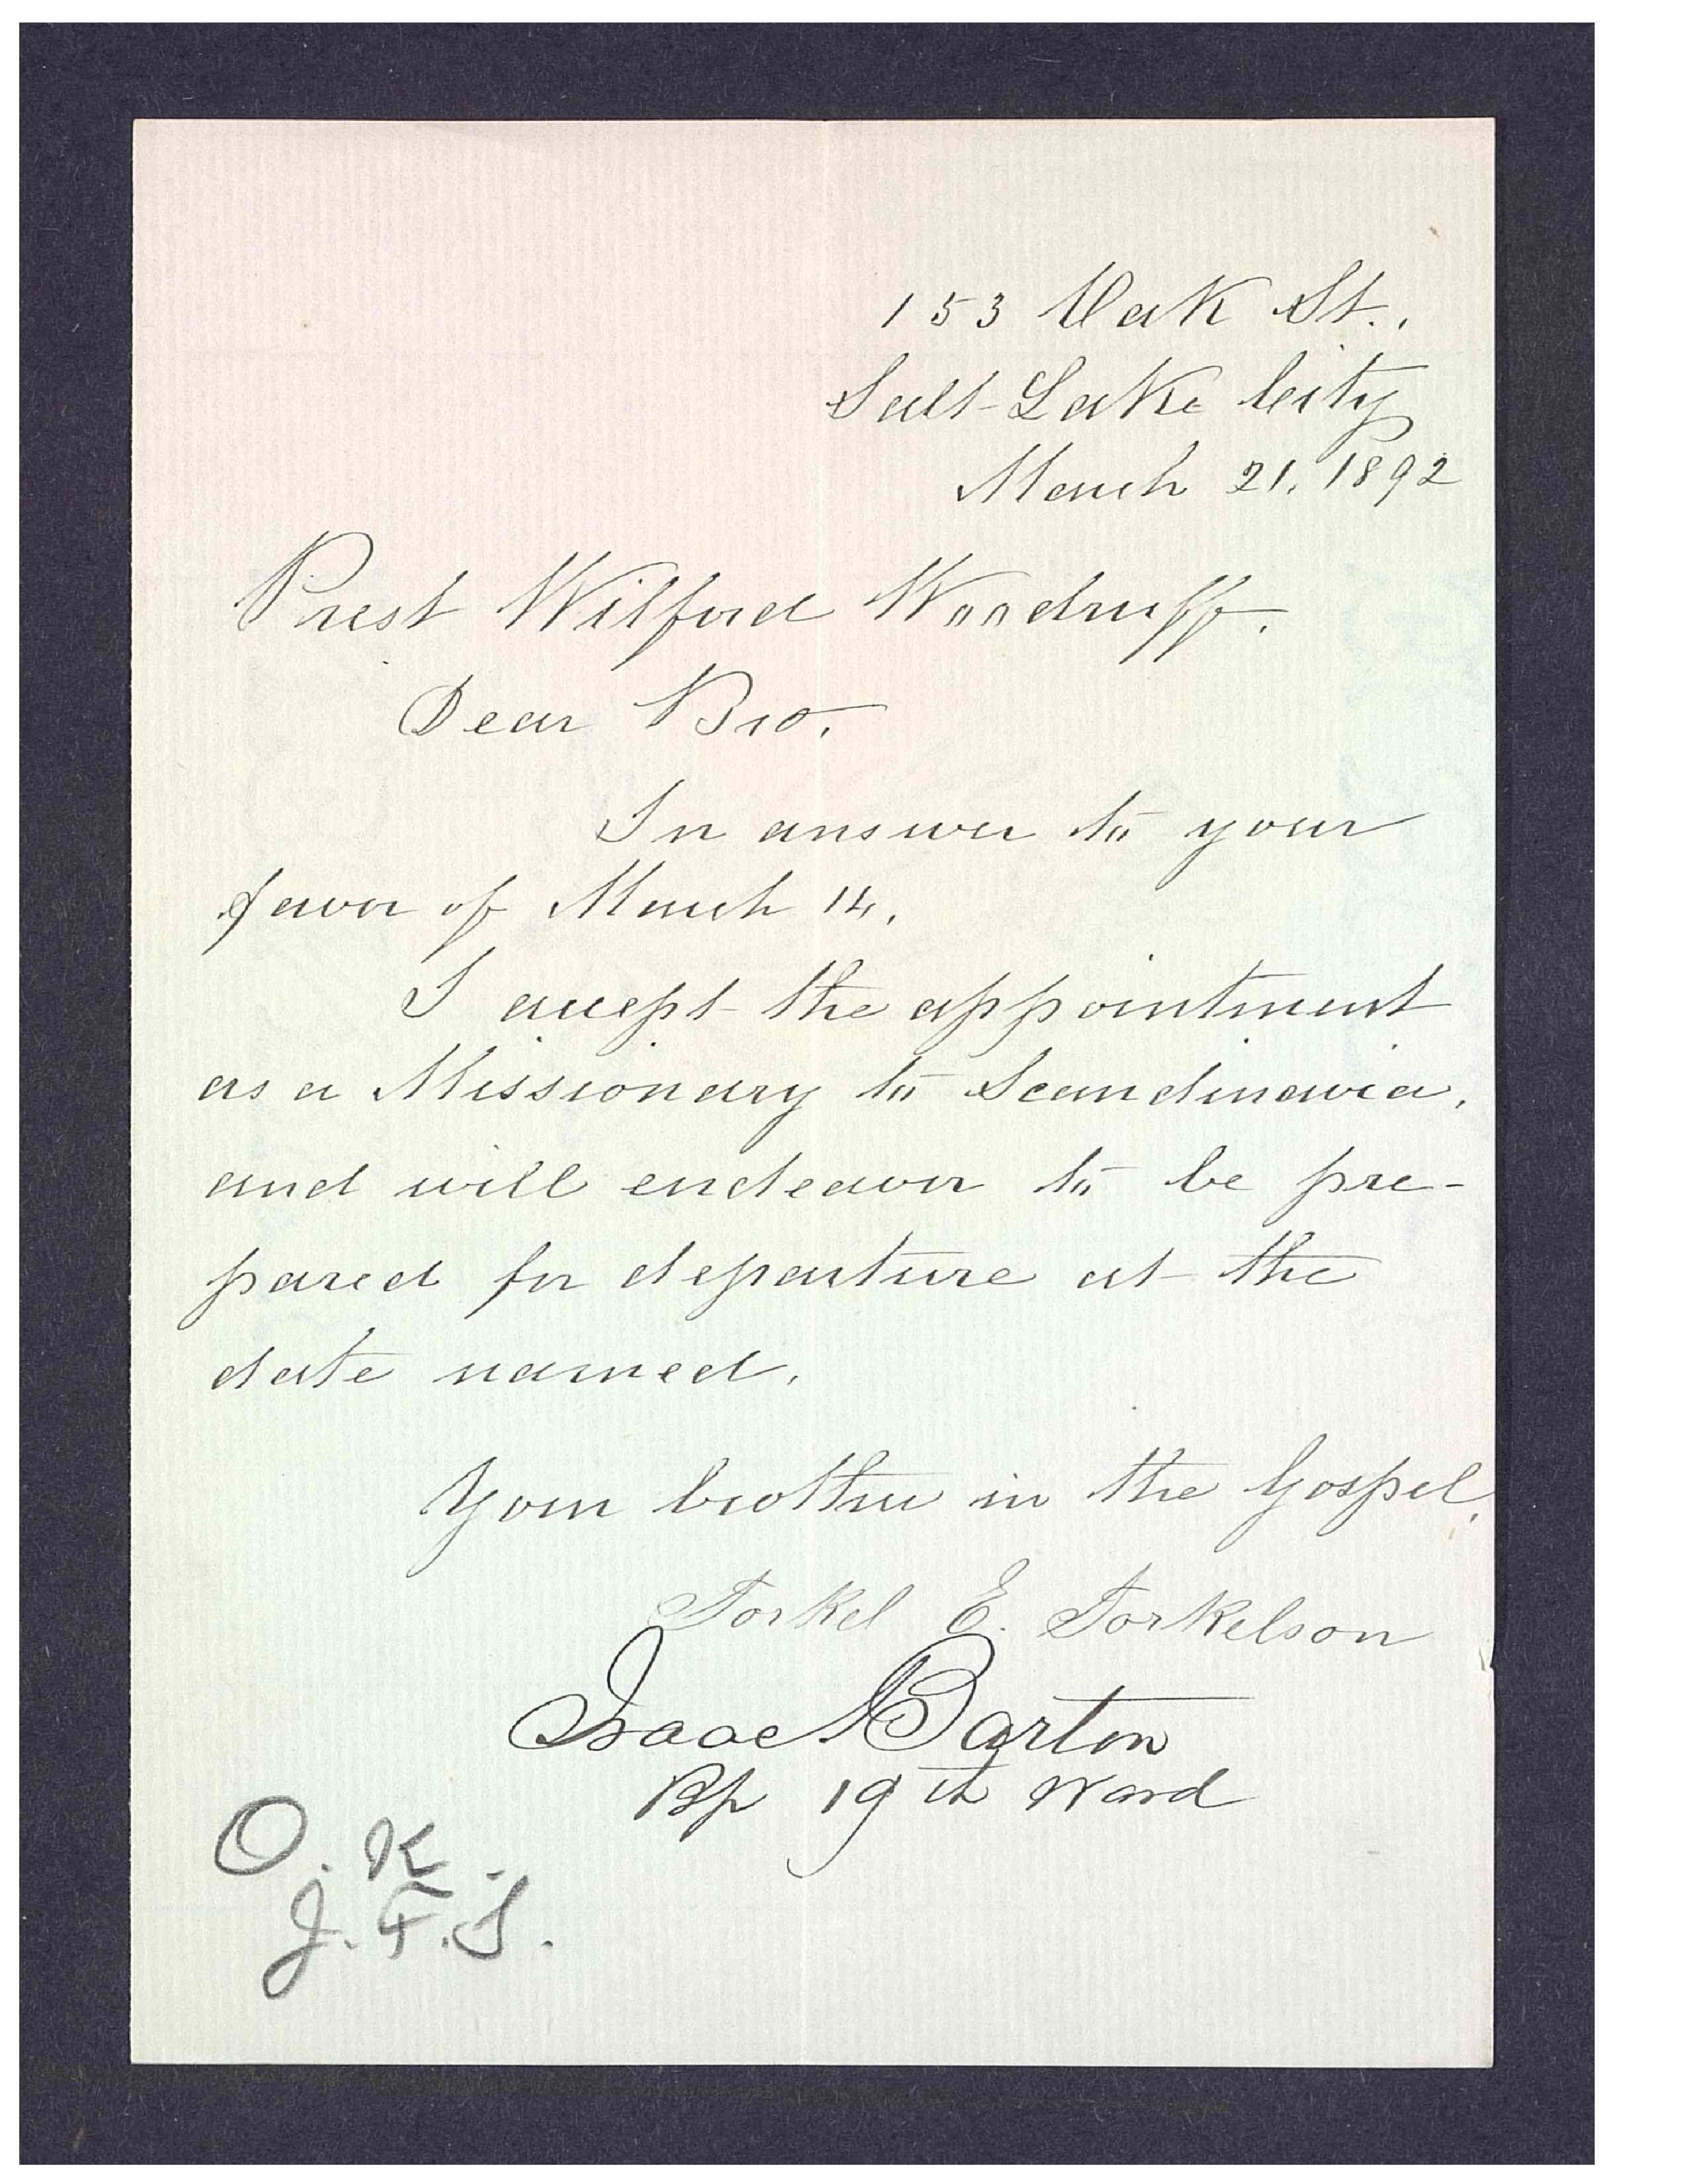 153 Oak St.,
Salt Lake City
March 21, 1892
Prest Wilford Woodruff.
Dear Bro.
In answer to your
favor of March 14,
I accept the appointment
as a Missionary to Scandinavia,
and will endeavor to be pre-
pared for departure at the
date named.
Your brother in the Gospel,
Torkel E. Torkelson
Isaac Barton
Bp 19th Ward
O.K.
J.F.S.